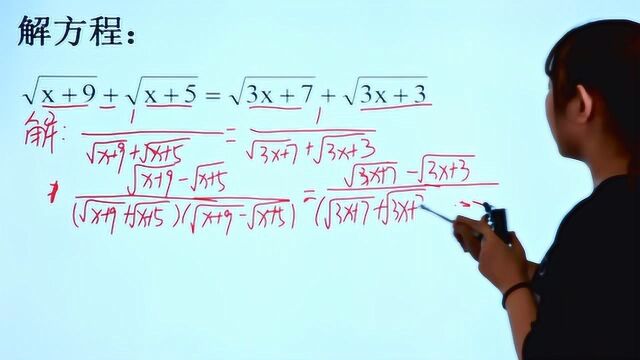 解方程：
√(x+9) + √(x+5) = √(3x+7) + √(3x+3)
解: 1/(√(x+9)+√(x+5)) = 1/(√(3x+7)+√(3x+3))
(√(x+9)-√(x+5))/((√(x+9)+√(x+5))(√(x+9)-√(x+5))) = (√(3x+7)-√(3x+3))/((√(3x+7)+√(3x+